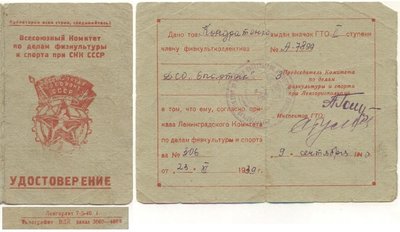 Пролетарии всех стран, соединяйтесь!
Всесоюзный Комитет
по делам физкультуры
и спорта при СНК СССР
СССР
УДОСТОВЕРЕНИЕ
Ленгорлит 7-5-40 г.
Типография ВПК заказ
Дано тов. Кондратенко
члену физкультколлектива
ДСО "Спартак"
в том, что ему, согласно приказа Ленинградского Комитета
по делам физкультуры и спорта
за № 306
от 23. XI 1939 г.
выдан значок ГТО I ступени
№ А-7899
Председатель Комитета
по делам
физкультуры и спорта
при Ленгорисполкоме
Инспектор ГТО
9. сентября 194